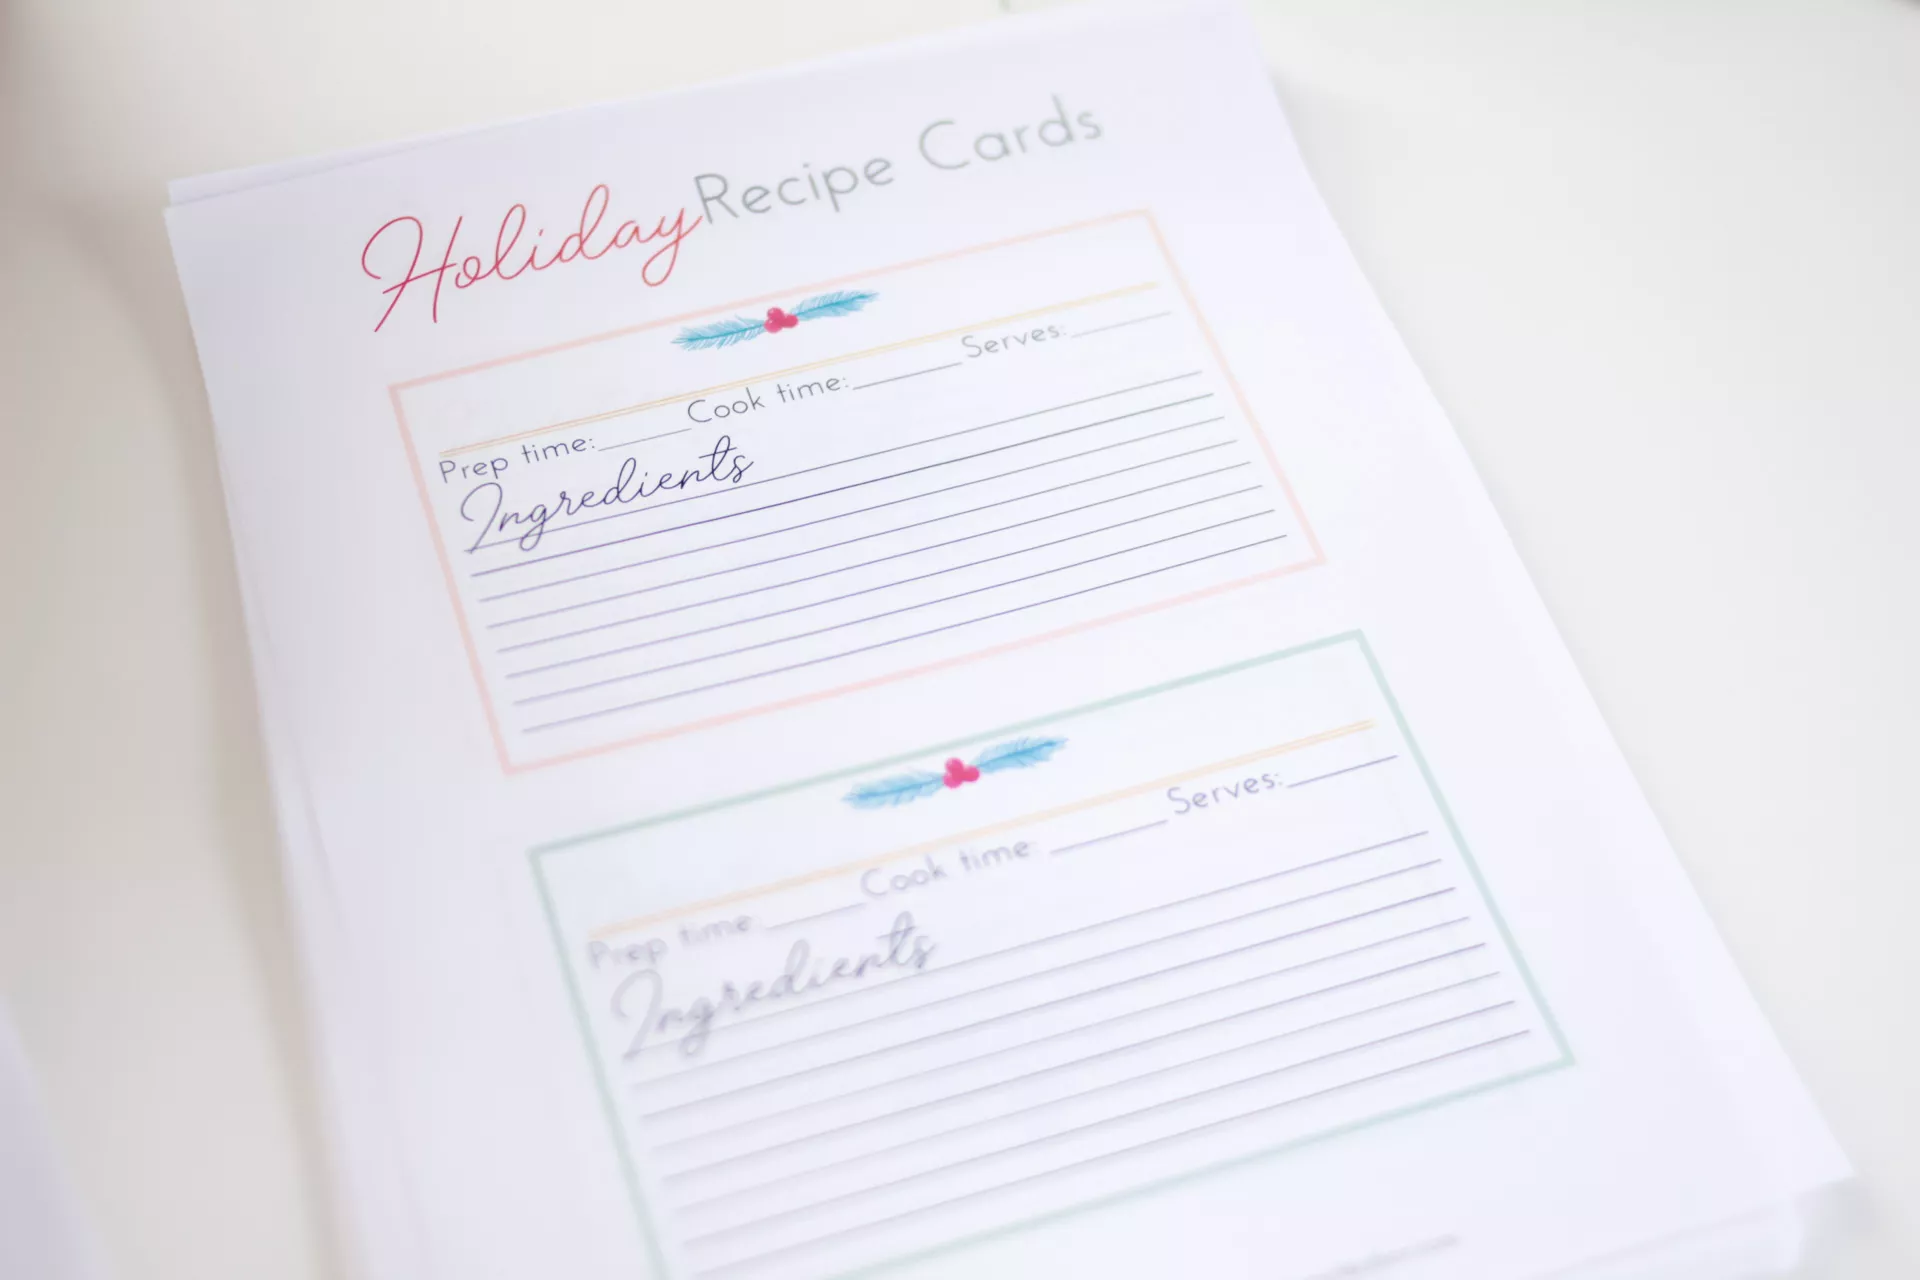 Holiday Recipe Cards
Prep time:______ Cook time:______ Serves:______
Ingredients
Prep time:______ Cook time:______ Serves:______
Ingredients